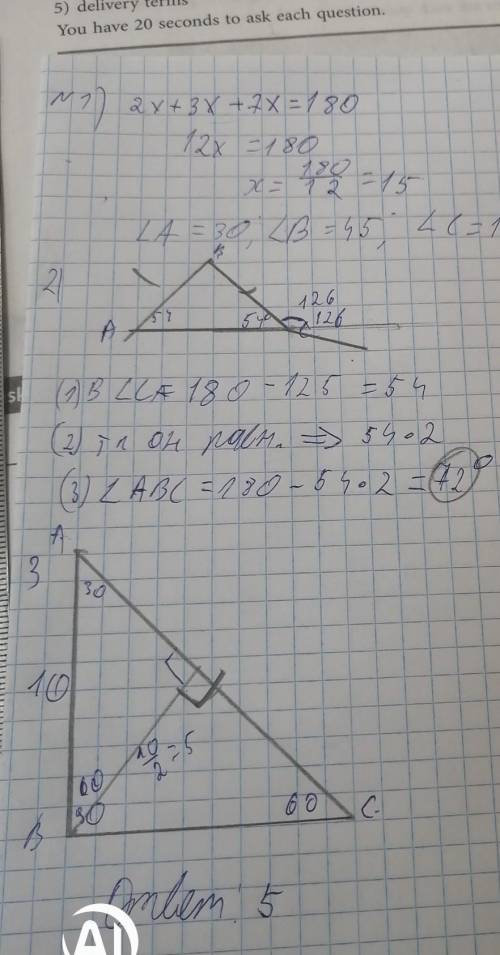 5) delivery terms
You have 20 seconds to ask each question.
№ 1) 2x+3x+7x=180
12x =180
x= 180/12 =15
∠A =30; ∠B =45; ∠C=1
B
2)
126
A 54 54 C 126
(1) В ∠C= 180 - 125 = 54
(2) тк он равн. => 54·2
(3) ∠ABC =180 - 54·2 = 72°
A
3
30
10
10/2=5
60
B 30 60 C
Ответ: 5